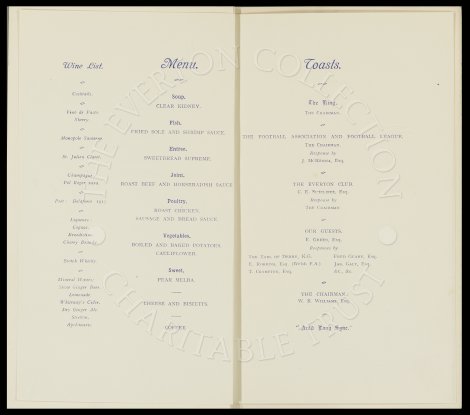 Wine List.
Cocktails.
Vino de Pasto
Sherry.
Monopole Sauterne.
St. Julien Claret.
Champagne
Pol Roger 1914.
Port: Delaforce 1912
Liqueurs:
Cognac.
Benedictine.
Cherry Brandy.
Scotch Whisky.
Mineral Waters:
Stone Ginger Beer.
Lemonade.
Whiteway's Cider.
Dry Ginger Ale
Apollinaris.
Menu.
Soup.
CLEAR KIDNEY.
Fish.
FRIED SOLE AND SHRIMP SAUCE.
Entree.
SWEETBREAD SUPREME.
Joint.
ROAST BEEF AND HORSERADISH SAUCE
Poultry.
ROAST CHICKEN.
SAUSAGE AND BREAD SAUCE.
Vegetables.
BOILED AND BAKED POTATOES.
CAULIFLOWER.
Sweet.
PEAR MELBA.
CHEESE AND BISCUITS.
COFFEE.
Toasts.
The King.
THE CHAIRMAN.
THE FOOTBALL ASSOCIATION AND FOOTBALL LEAGUE.
THE CHAIRMAN.
Response by
J. McKenna, Esq.
THE EVERTON CLUB.
C. E. Sutcliffe, Esq.
Response by
THE CHAIRMAN
OUR GUESTS.
E. Green, Esq.
Responses by
The Earl of Derby, K.G.
E. Robbins, Esq. (Welsh F.A.)
T. Crompton, Esq.
Fred Geary, Esq.
Jno. Galt, Esq.
&c. &c.
THE CHAIRMAN.
W. R. Williams, Esq.
"Auld Lang Syne."
THE EVERTON COLLECTION
CHARITABLE TRUST